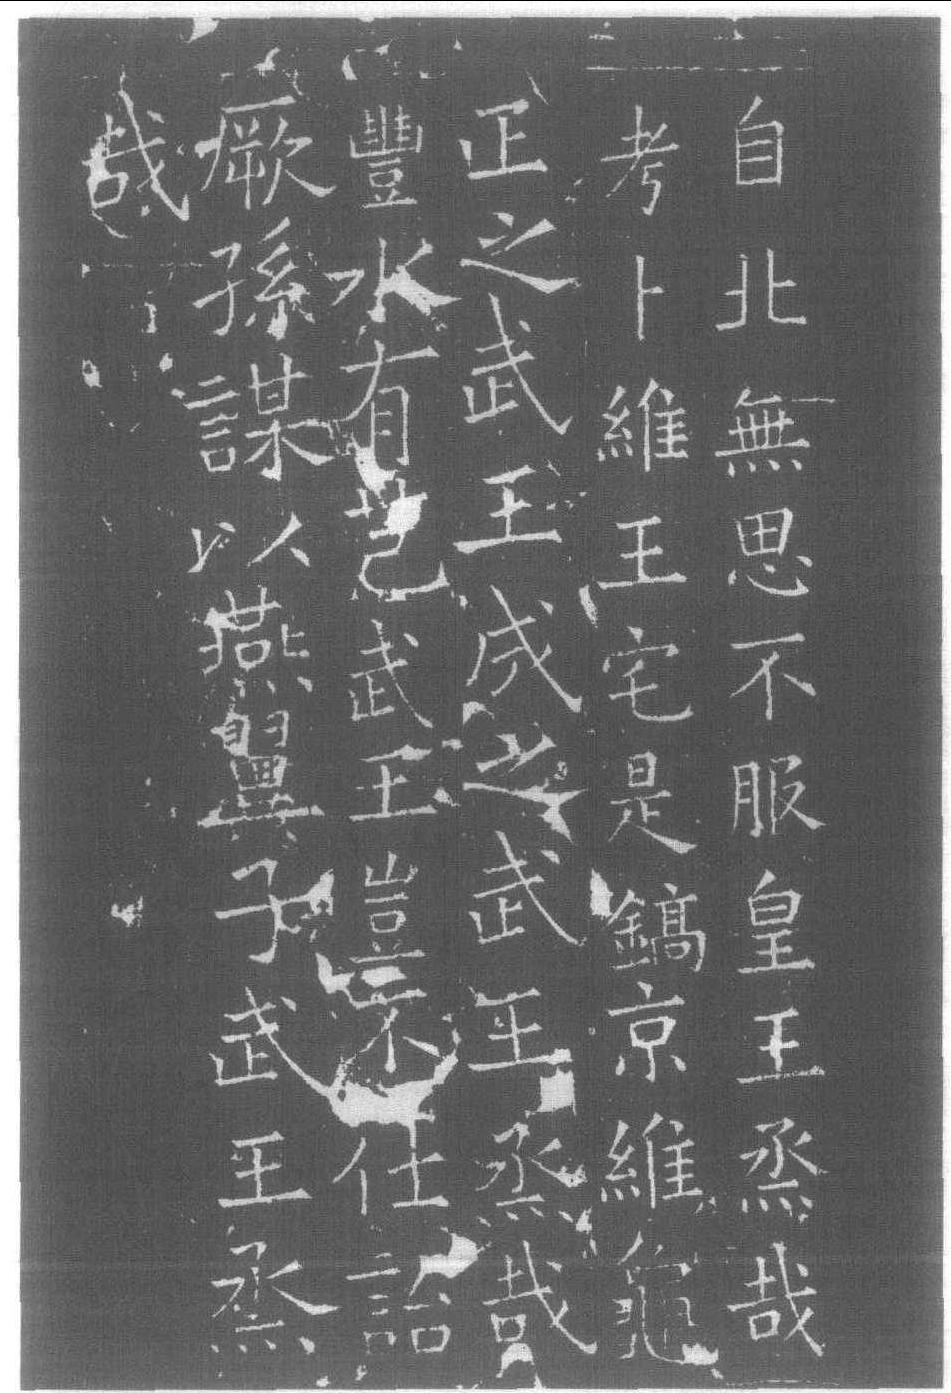 自北無思不服皇王烝哉
考卜維王宅是鎬京維龜
正之武王成之武王烝哉
豐水有芑武王豈不仕詒
厥孫謀以燕翼子武王烝
哉